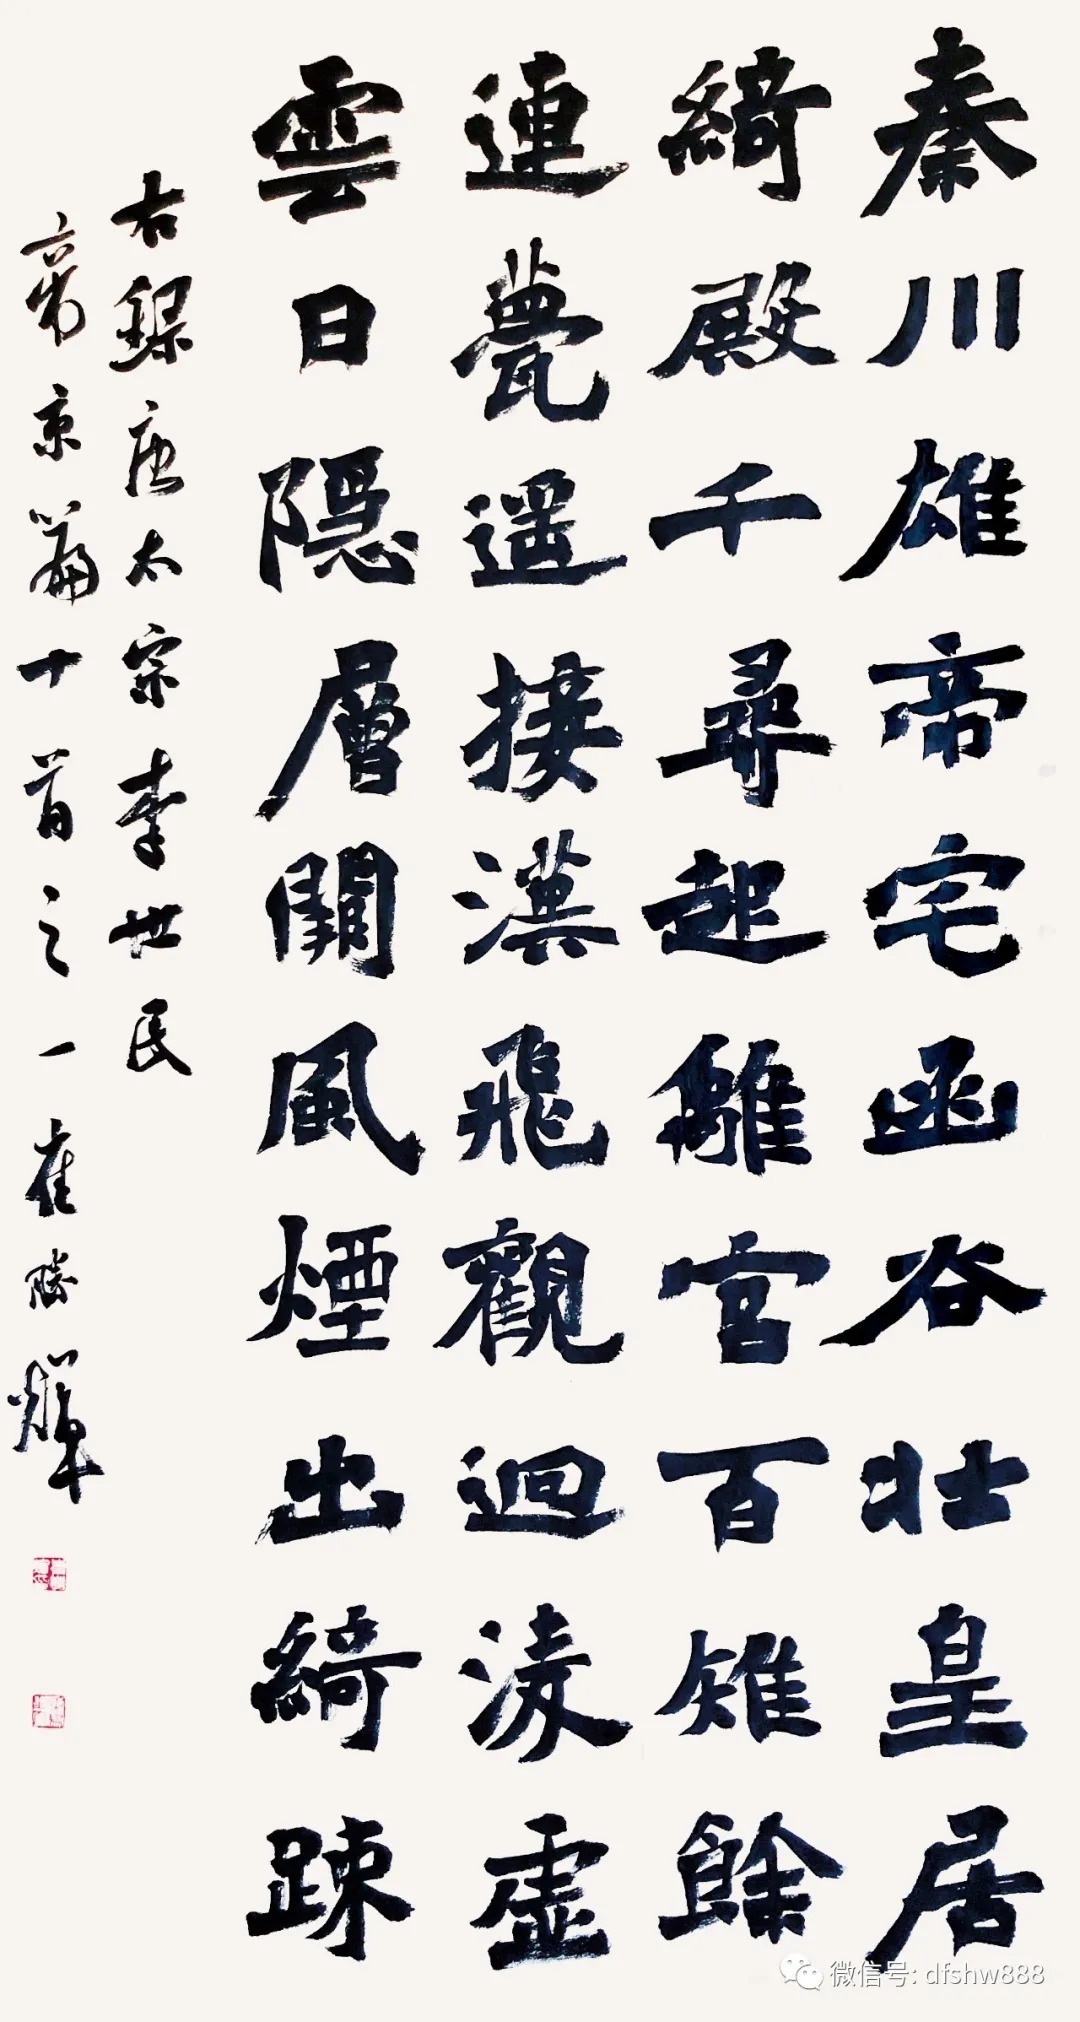 秦川雄帝宅函谷壯皇居
綺殿千尋起離宮百雉餘
連甍遥接漢飛觀迴淩虛
雲日隱層闕風煙出綺踈
右録唐太宗李世民
帝京篇十首之一崔勝輝
微信号: dfshw888